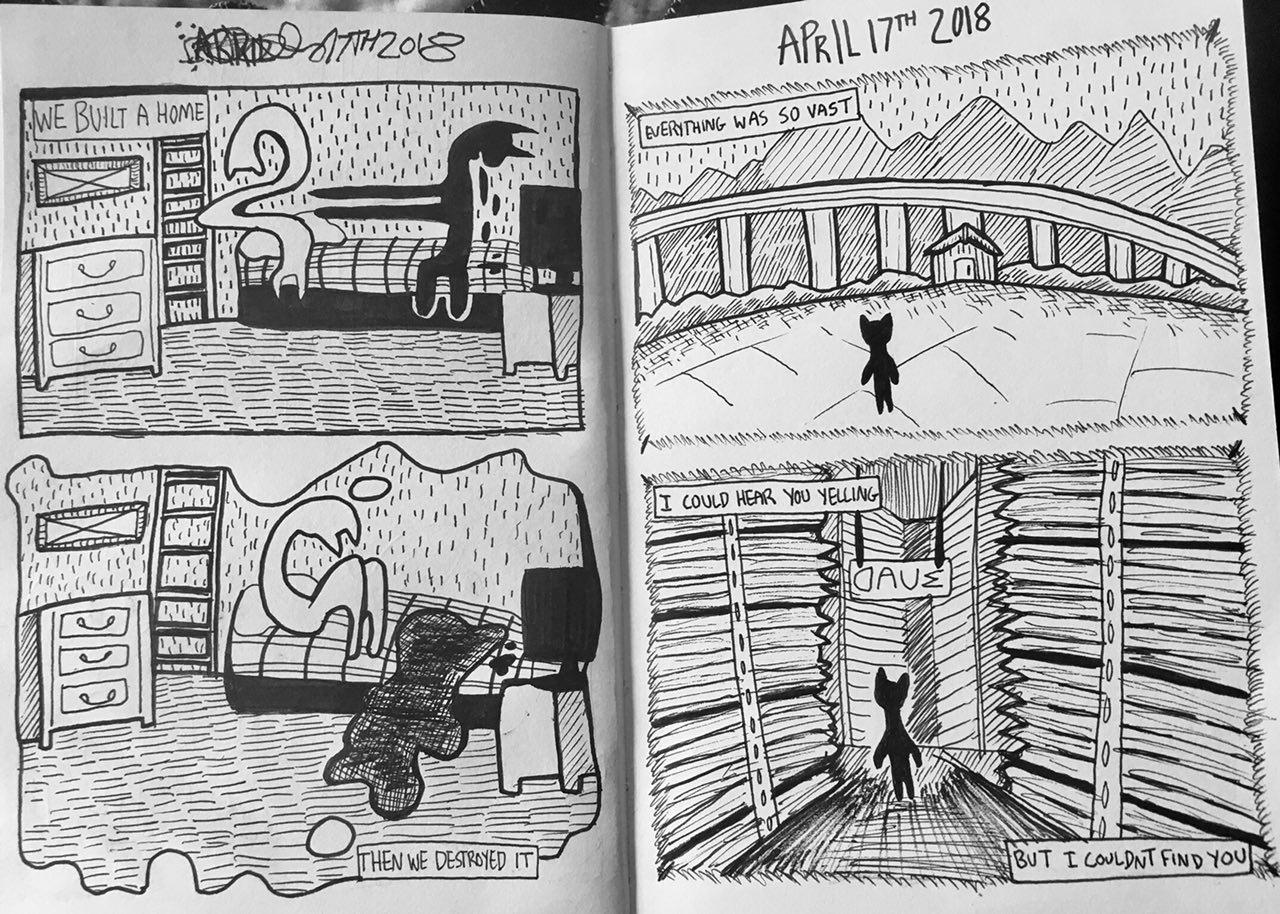 17TH 2018
WE BUILT A HOME
THEN WE DESTROYED IT
APRIL 17TH 2018
EVERYTHING WAS SO VAST
I COULD HEAR YOU YELLING
BUT I COULDNT FIND YOU